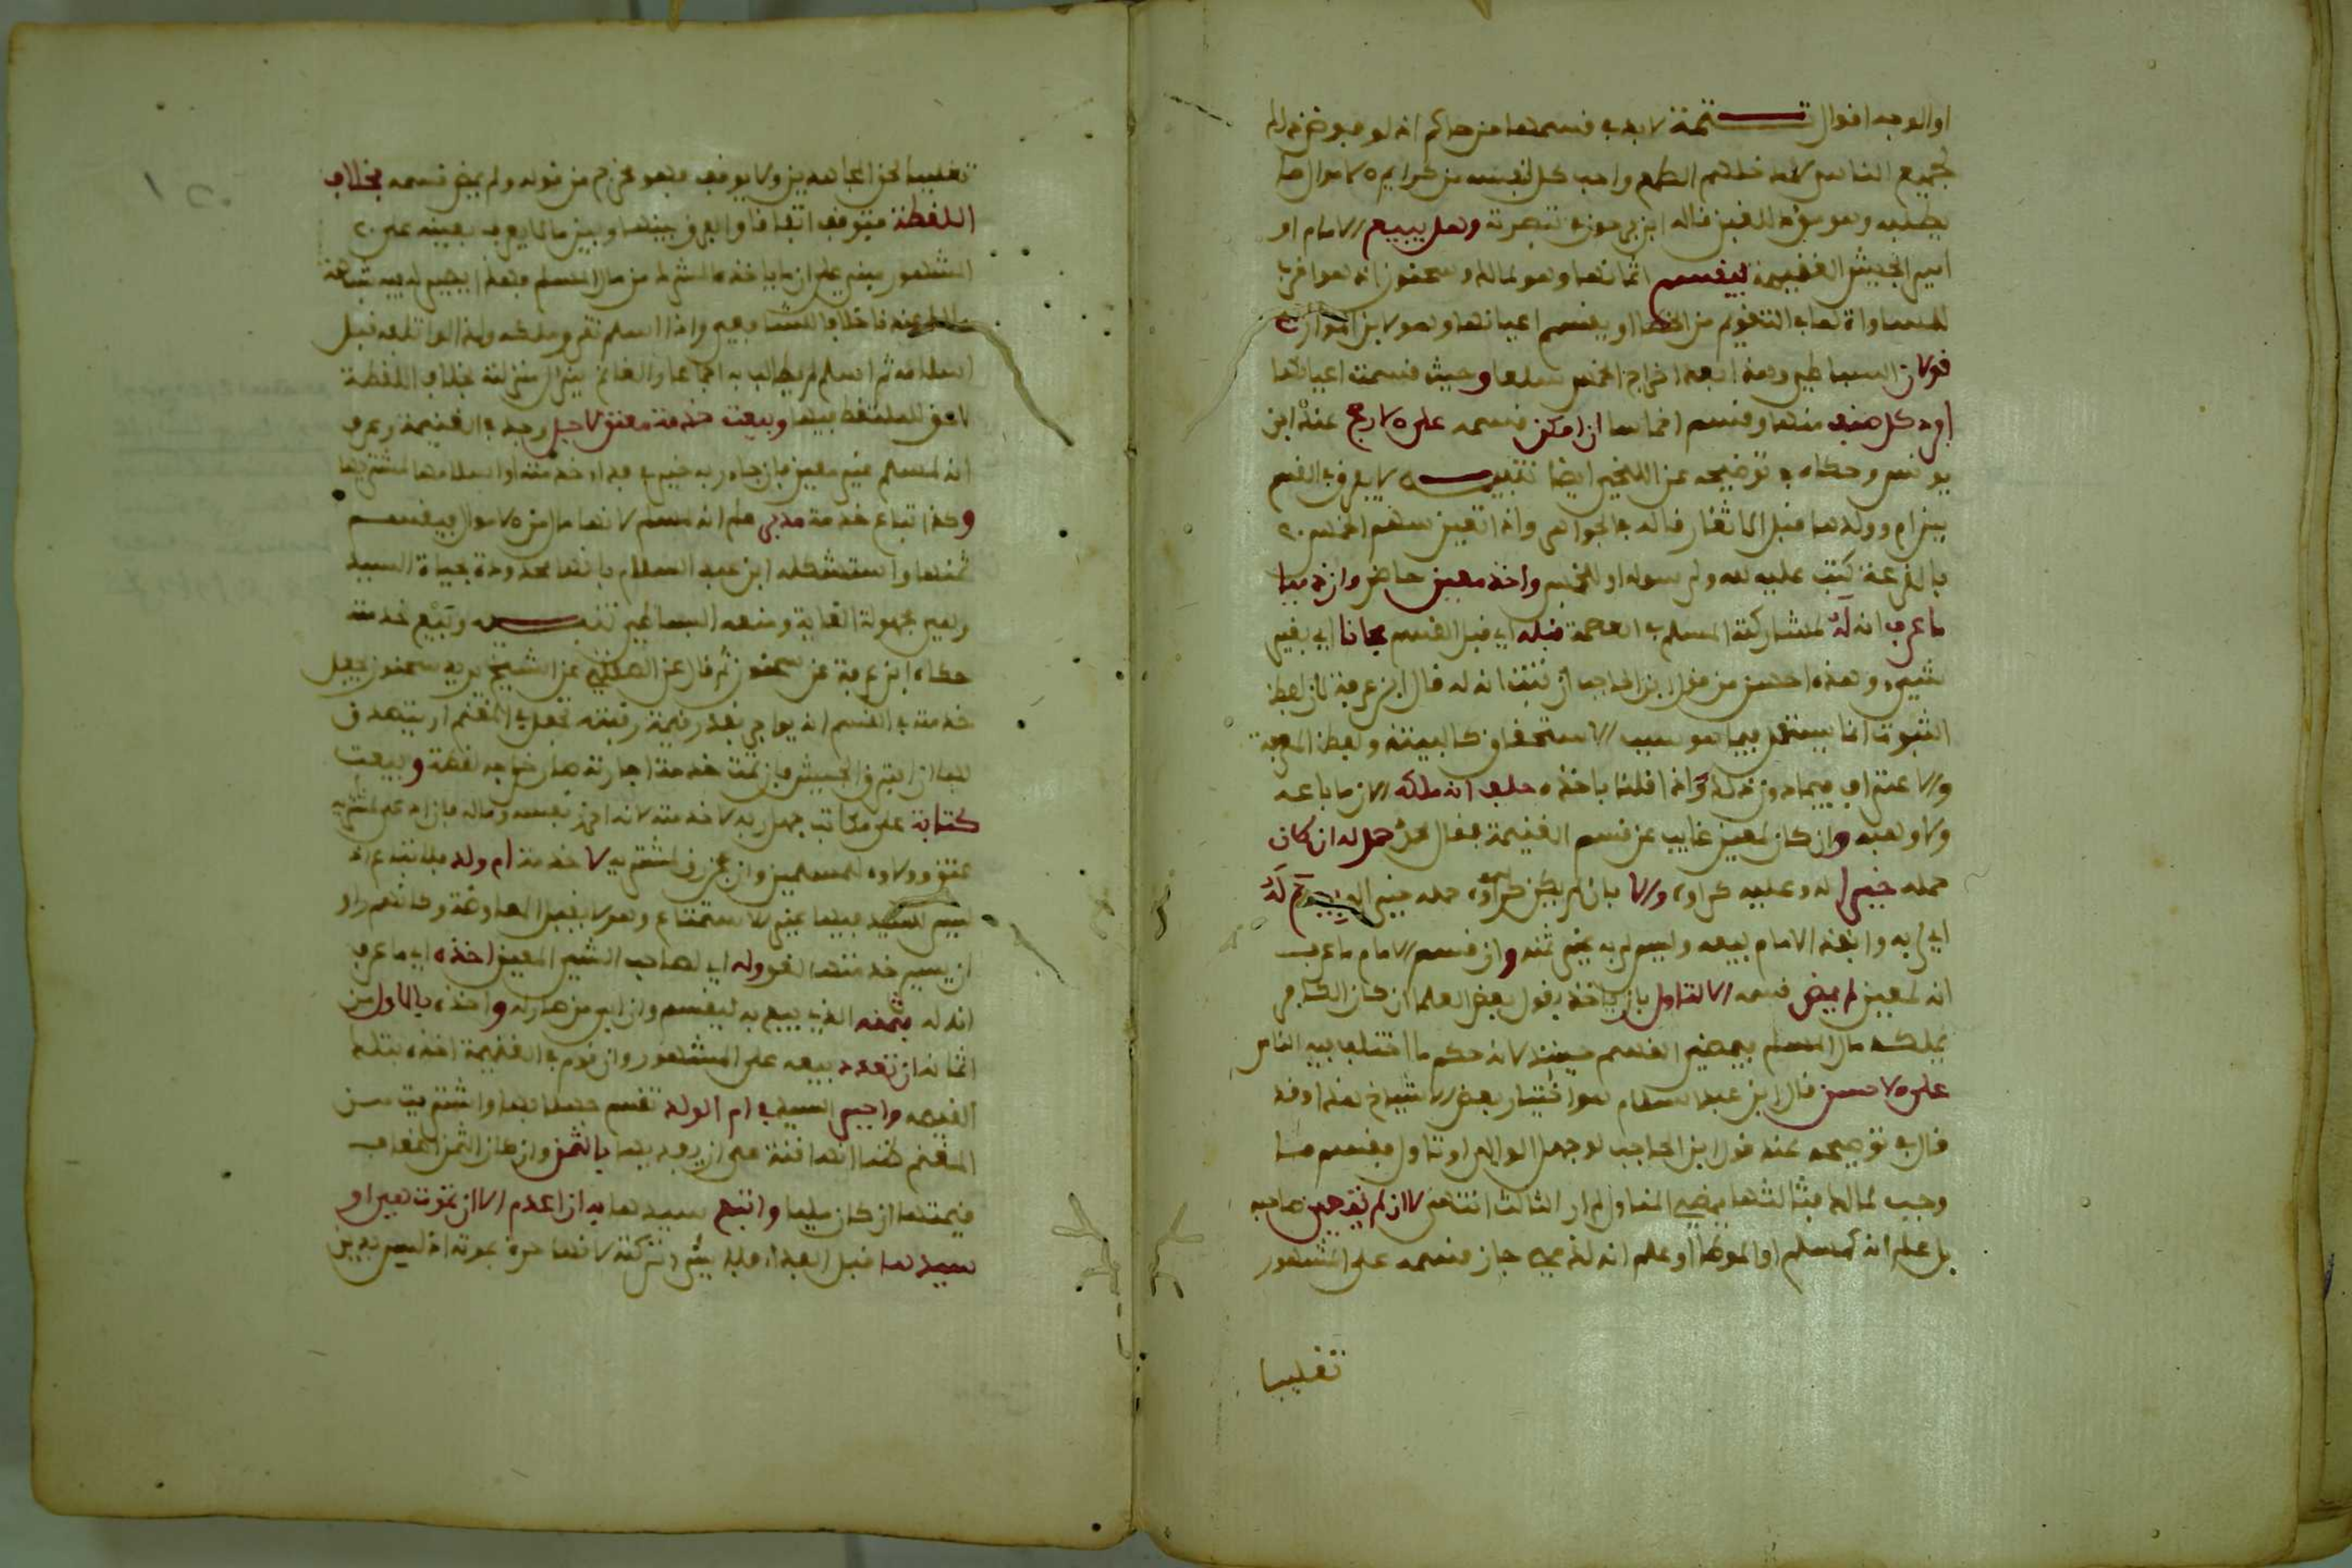 او الوجه اقوال تتمة لا بد في قسمتها من حاكم اذ لو فوض ذلك
لجميع الناس لدخلهم الطمع واحب كل لنفسه من كرايم الاموال ما
يطلبه وهو مؤد للفتن قاله ابن فرحون في تبصرته وهل يبيع الامام او
امير الجيش الغنيمة ليقسم اثمانها وهو لمالك وسحنون اذ هو اقرب
للمساواة لما في التقويم من الخطا او يقسم اعيانها وهو لابن المواز
قولان البساطي وهذا بعد اخراج الخمس سلعا وحيث قسمت اعيانها
افرد كل صنف منها وقسم اخماسا ان امكن قسمه على الارجح عند ابن
يونس وحكاه في توضيحه عن اللخمي ايضا تنبيه لا يفرق في القسم
بين ام وولدها قبل الاثغار قاله في الجواهر واذا تعين سهم الخمس
بالقرعة كتب عليه لله ولرسوله او للخمس واخذ معين حاضر وان ذميا
ما عرف انه له لمشاركة المسلم في العصمة قبله اي قبل القسم مجانا اي بغير
شيء وهذه احسن من قول ابن الحاجب ان ثبت انه له قال ابن عرفة لان لفظ
الثبوت انما يستعمل فيما هو سبب الاستحقاق كالبينة ولفظ المعرفة
والاعتراف فيما دون ذلك واذا قلنا ياخذه حلف انه ملكه الان ما باعه
ولا وهبه وان كان المعين غايب عن قسم الغنيمة فقال محمد حمل له ان كان
حمله خيرا له وعليه كراوه والا بان لم يكن كراوه حمله خير اله بيع له
اي لربه وانفذ الامام بيعه وليس لربه غير ثمنه وان قسم الامام ما عرف
انه لمعين لم يمض قسمه الا لتاول بان ياخذ بقول بعض العلما ان كان الكافر
يملك مال المسلم فيمضي القسم حينئذ لانه حكم بما اختلف فيه الناس
على الاحسن قال ابن عبد السلام هو اختيار بعض الاشياخ هذا وقد
قال في توضيحه عند قول ابن الحاجب لو جهل الوالي او تاول فقسم ما
وجب لمالك فثالثها يمضي المتاول ار الثالث انتهى لا ان لم يتعين صاحبه
بل علم انه لمسلم او الموطا او علم انه لذمي جاز قسمه على المشهور
تغليبا
تغليبا لحق المجاهدين ولا يوقف فهو مخرج من قوله ولم يمض قسمه بخلاف
اللقطة فتوقف اتفاقا والفرق بينها وبين ما لا يعرف بعينه على
المشهور مبني على ان ما ياخذه المشرك من مال المسلم فهذا يصير له فيه شبهة
ملك عندنا خلافا للشافعي واذا اسلم تقرر ملكه ولذا لو اتلفه قبل
اسلامه ثم اسلم لم يطالب به اجماعا والغانم ينزل منزلته بخلاف اللقطة
لا حق للملتقط فيها وبيعت خدمة معتق لاجل وجد في الغنيمة وعرف
انه لمسلم غير معين فان جا ربه خير في فدا خدمته او اسلامها لمشتريها
وكذا تباع خدمة مدبر علم انه لمسلم لانها مال من الاموال فيقسم
ثمنها واستشكله ابن عبد السلام بانها محدودة بحياة السيد
وهي مجهولة الغاية ومنعه البساطي تنبيه وبيع خدمته
حكاه ابن عرفة عن سحنون ثم قال عن الصقلي عن الشيخ يريد سحنون بجعل
خدمته في القسم انه يواجر بقدر قيمة رقبته تجعل في المغنم او يتصدق
بها ان افترق الجيش فان تمت خدمة اجارته صار خراجه لقطة وبيعت
كتابة على مكاتب جهل ربه لا خدمته لانه احرز نفسه وماله فان ادى لمشتريه
عتق وولاوه للمسلمين وان عجز رق لمشتريه لا خدمة ام ولد فلا تباع اذ
ليس للسيد فيها غير الاستمتاع وهو لا يقبل المعاوضة وكانهم راوا
ان يسير خدمتها لغو وله اي لصاحب الشيء المعين اخذه اي ما عرف
انه له بثمنه الذي بيع به ليقسم وان ابى من صار له واخذه بالاول من
اثمانه ان تعدد بيعه على المشهور وان قوم في الغنيمة اخذه بتلك
القيمة واجبر السيد في ام الولد تقسم جهلا بها او اشتريت من
المغنم ظنا انها قنة على ان يفديها بالثمن وان كان الثمن اضعاف
قيمتها ان كان مليا واتبع سيدها به ان اعدم الا ان تموت هي او
سيدها قبل الفدا فلا شيء في تركته لانها حرة بموته اذ ليس بدين